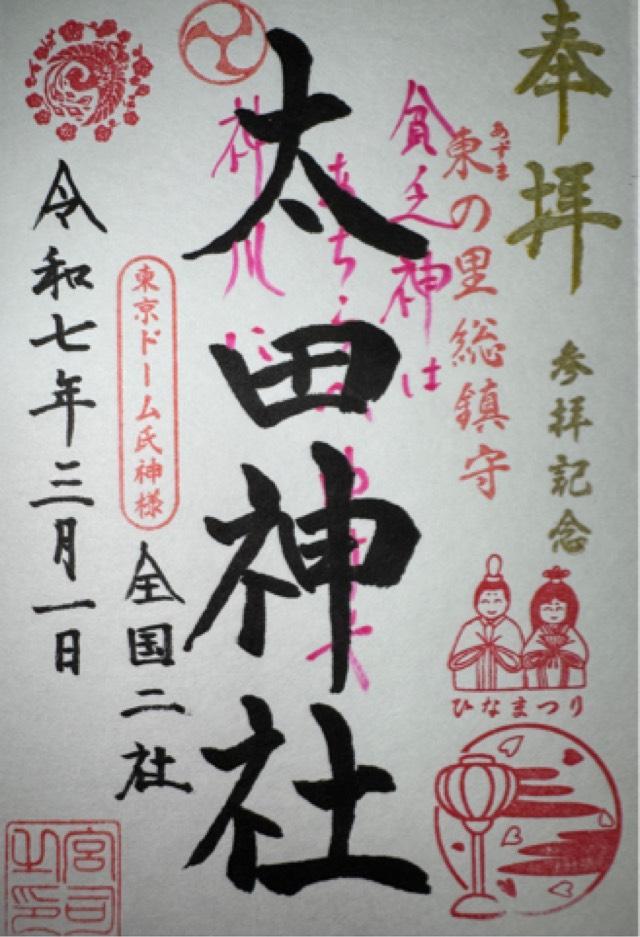 奉拝
参拝記念
あずま
東の里総鎮守
ひなまつり
貧乏神は
太田神社
東京ドーム氏神様
全国二社
令和七年三月一日
宮司
之印